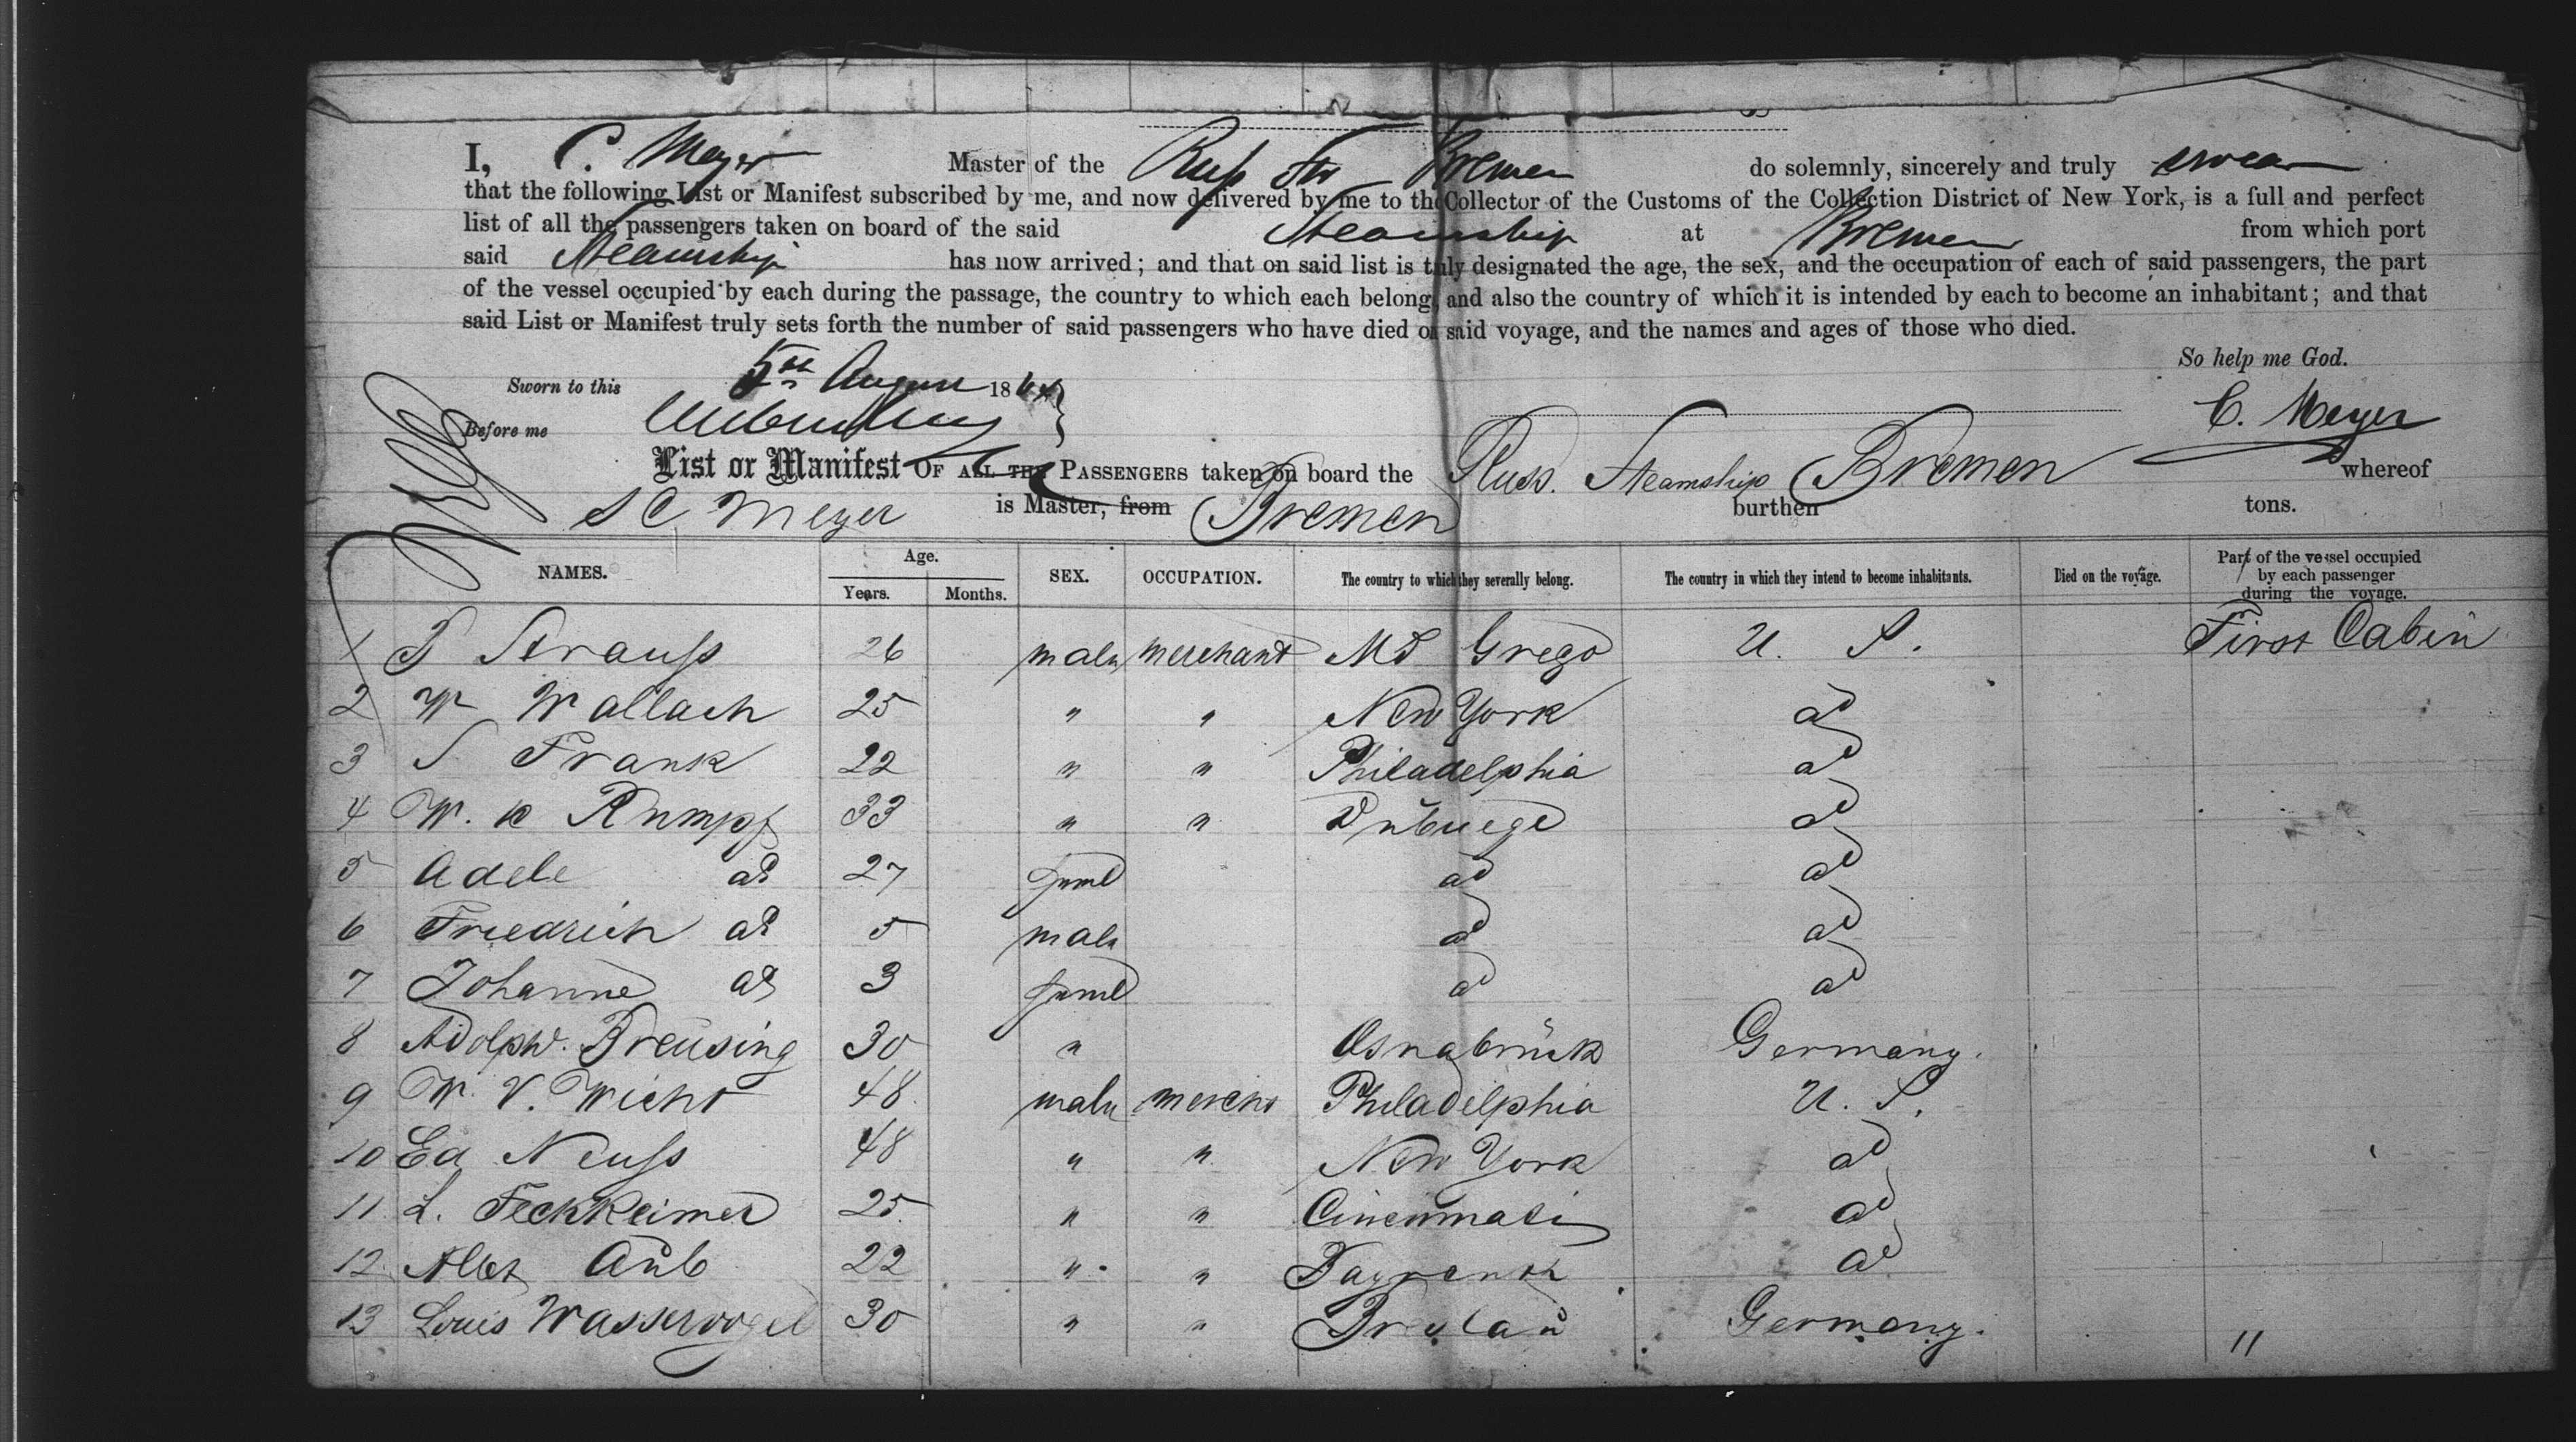 I, C. Meyer Master of the Russ Str Bremen do solemnly, sincerely and truly swear
that the following List or Manifest subscribed by me, and now delivered by me to the Collector of the Customs of the Collection District of New York, is a full and perfect
list of all the passengers taken on board of the said Steamship at Bremen from which port
said Steamship has now arrived; and that on said list is truly designated the age, the sex, and the occupation of each of said passengers, the part
of the vessel occupied by each during the passage, the country to which each belong, and also the country of which it is intended by each to become an inhabitant; and that
said List or Manifest truly sets forth the number of said passengers who have died on said voyage, and the names and ages of those who died.
So help me God.
Sworn to this 5th August 1864
C. Meyer
Before me
List or Manifest OF ALL THE PASSENGERS taken on board the Russ. Steamship Bremen whereof
C Meyer is Master, from Bremen burthen tons.
NAMES. Age. Years. Months. SEX. OCCUPATION. The country to which they severally belong. The country in which they intend to become inhabitants. Died on the voyage. Part of the vessel occupied by each passenger during the voyage.
1 Strauss 26 male merchant U. S. First Cabin
2 W Wallach 25 " " New York do
3 S Frank 22 " " Philadelphia do
4 W. Rumpf 33 " " do
5 Adele do 27 feml do do
6 Friedrich do 5 male do do
7 Johanne do 3 feml do do
8 Adolph. Breusing 30 " Osnabrück Germany.
9 W. V. Wicht 48 male mercht Philadelphia U. S.
10 Ed Neuss 48 " " New York do
11 L. Feckheimer 25 " " Cincinnati do
12 Albt Aub 22 " " Bayreuth do
13 Louis Wasservogel 30 " " Breslau Germany.
11